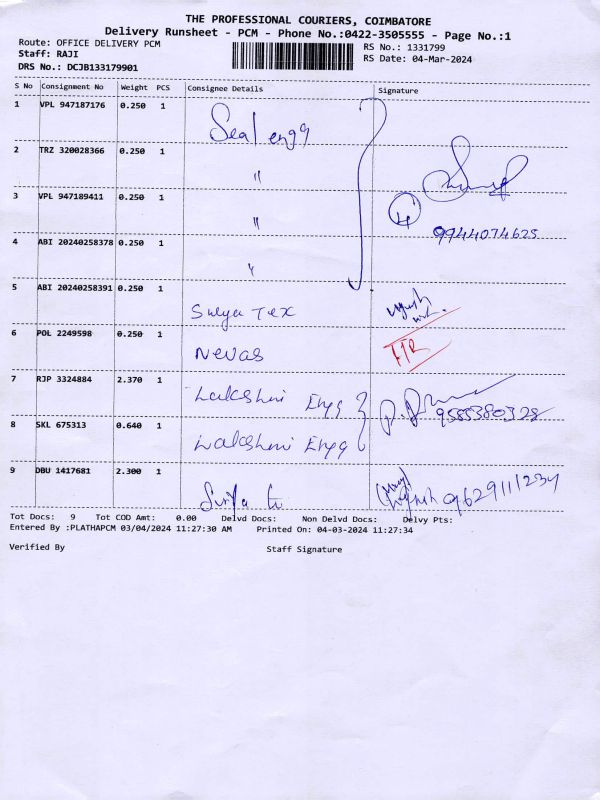 THE PROFESSIONAL COURIERS, COIMBATORE
Delivery Runsheet - PCM - Phone No.:0422-3505555 - Page No.:1
Route: OFFICE DELIVERY PCM
RS No.: 1331799
Staff: RAJI
RS Date: 04-Mar-2024
DRS No.: DCJB133179901
S No Consignment No Weight PCS Consignee Details Signature
1 VPL 947187176 0.250 1 Seal engg
2 TRZ 320028366 0.250 1 "
3 VPL 947189411 0.250 1 " 4
9944074625
4 ABI 20240258378 0.250 1 "
5 ABI 20240258391 0.250 1
Surya Tex
6 POL 2249598 0.250 1 Nevas
7 RJP 3324884 2.370 1 Lakshmi Engg
9585380328
8 SKL 675313 0.640 1 Lakshmi Engg
9 DBU 1417681 2.300 1
Surya 9629111234
Tot Docs: 9 Tot COD Amt: 0.00 Delvd Docs: Non Delvd Docs: Delvy Pts:
Entered By :PLATHAPCM 03/04/2024 11:27:30 AM Printed On: 04-03-2024 11:27:34
Verified By Staff Signature